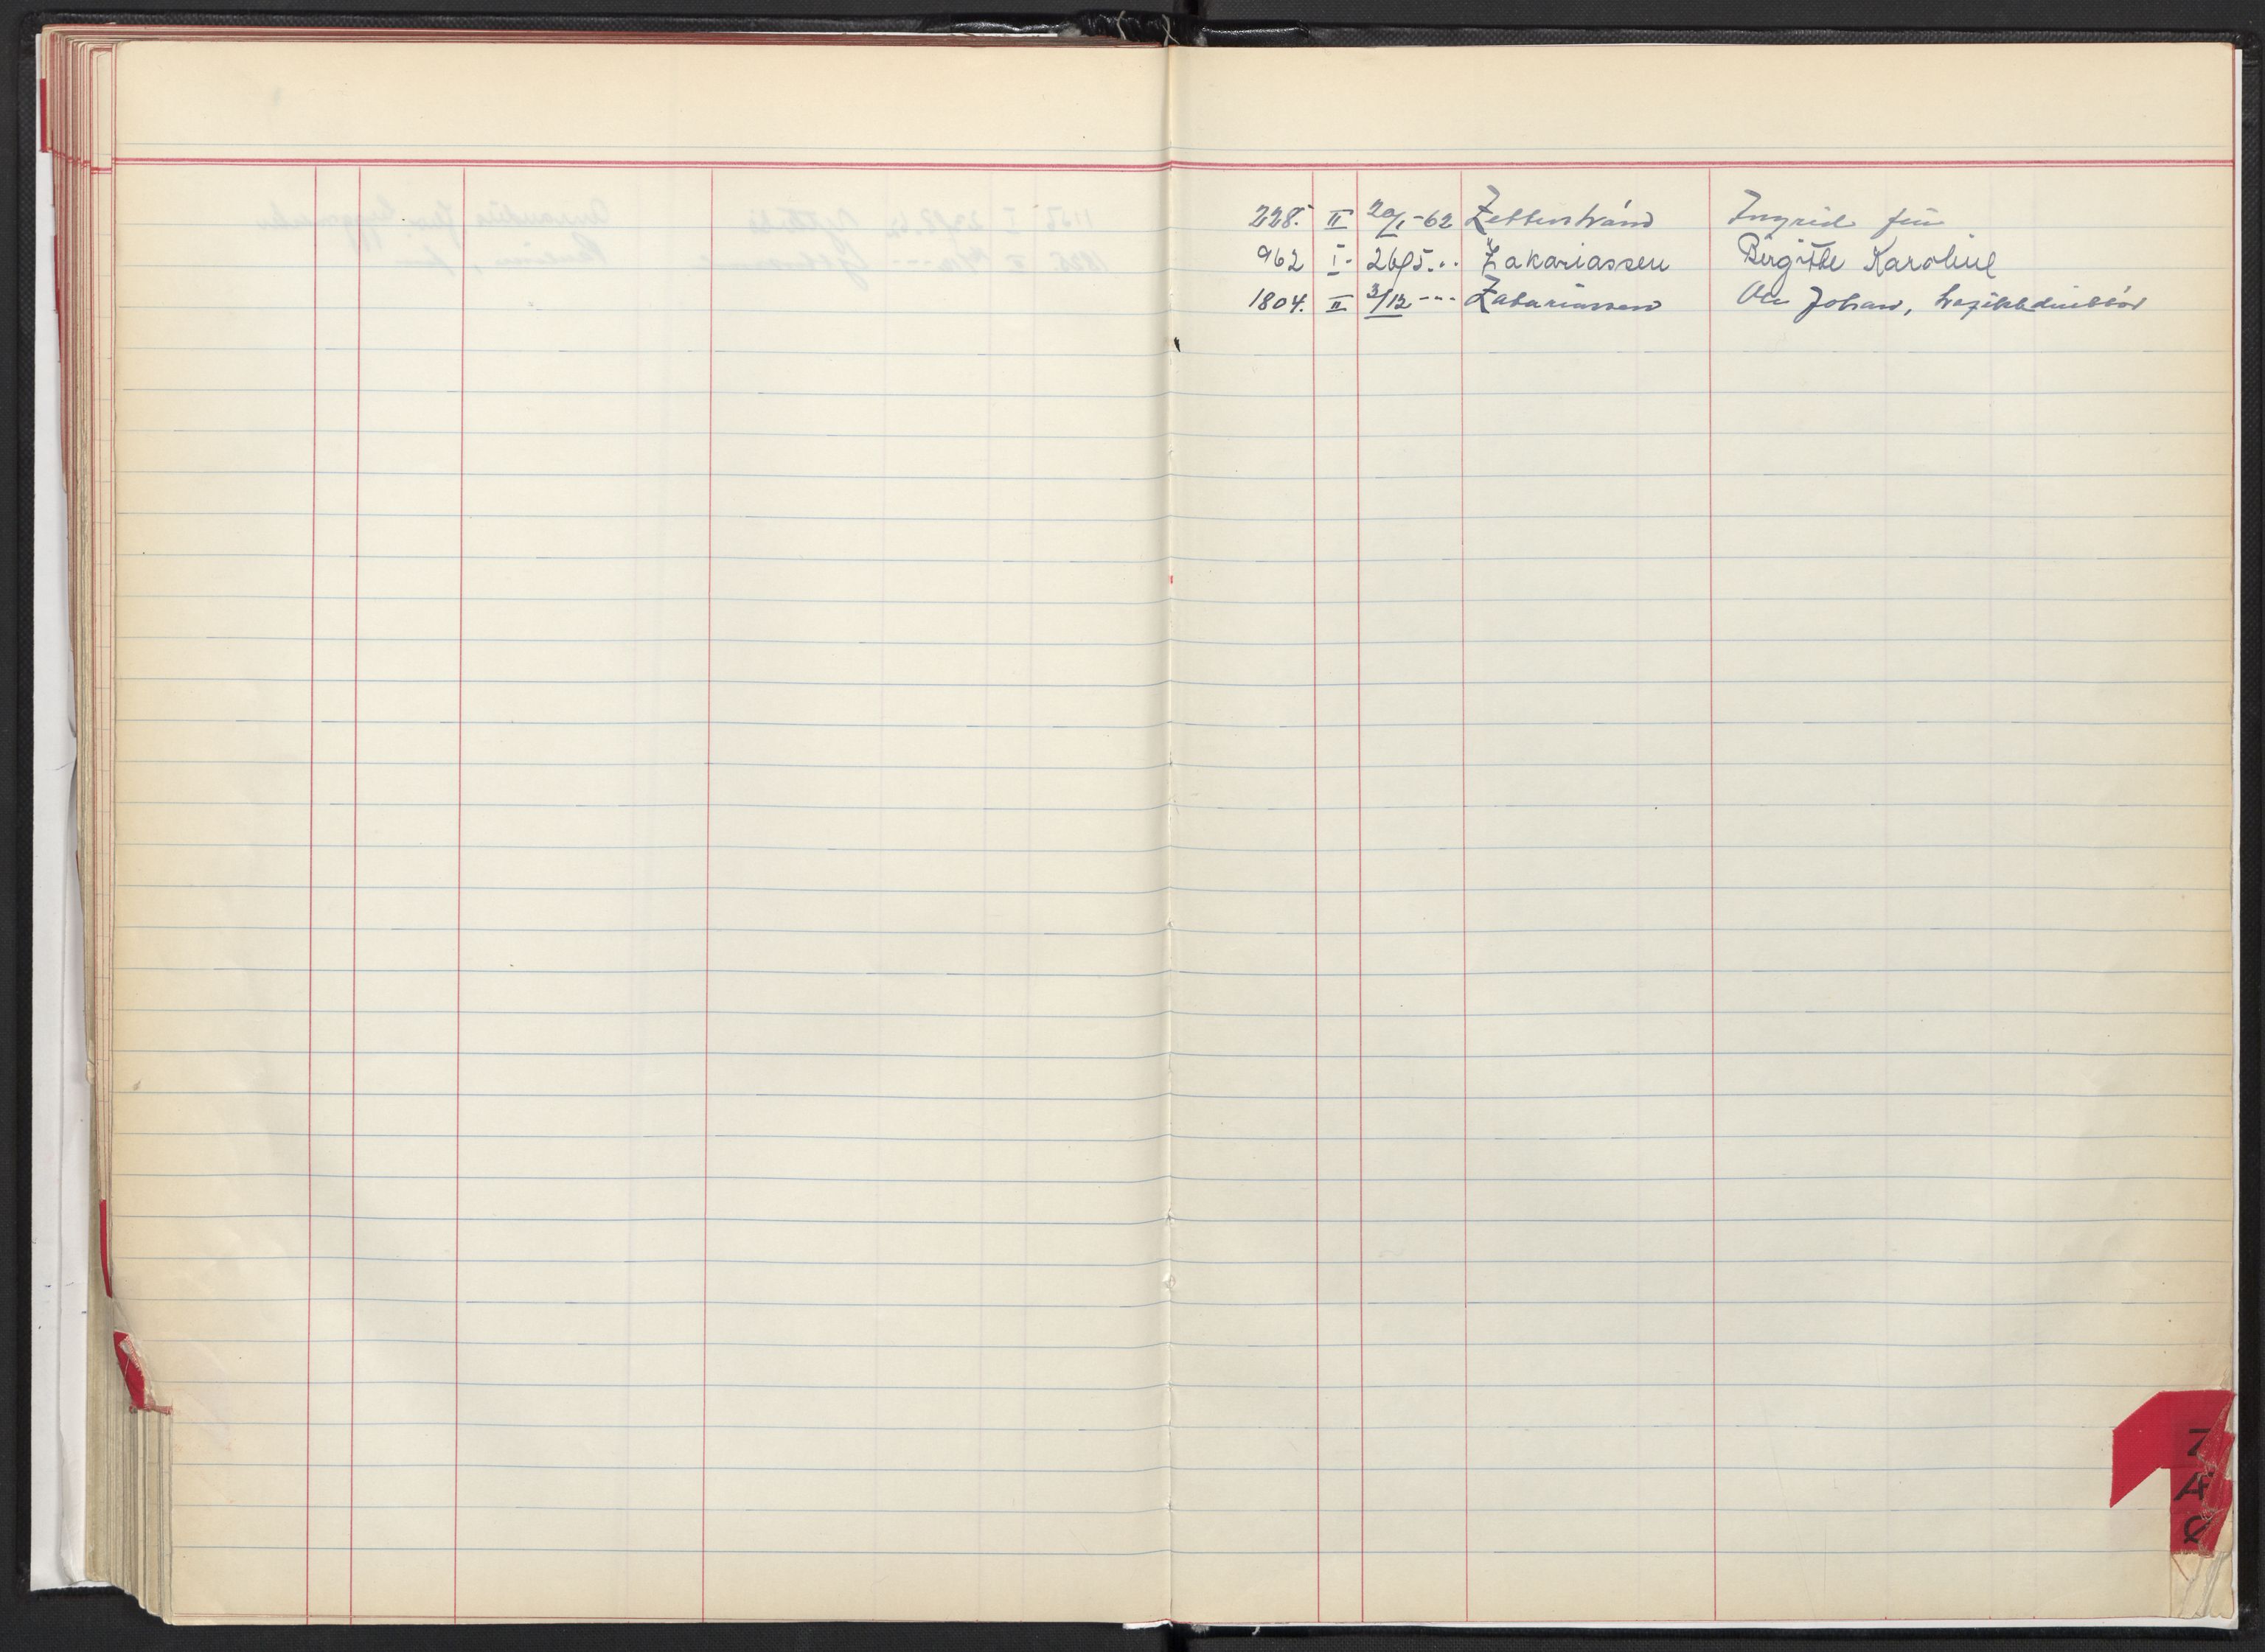 228. II 20/1-62 Zetterstrand Ingrid frü
962 I. 26/5 - " - Zakariassen Birgitte Karoline
1804. II 3/12 --- Zakariassen Ole Johan, trafikkdirektør
Z
Æ
Ø